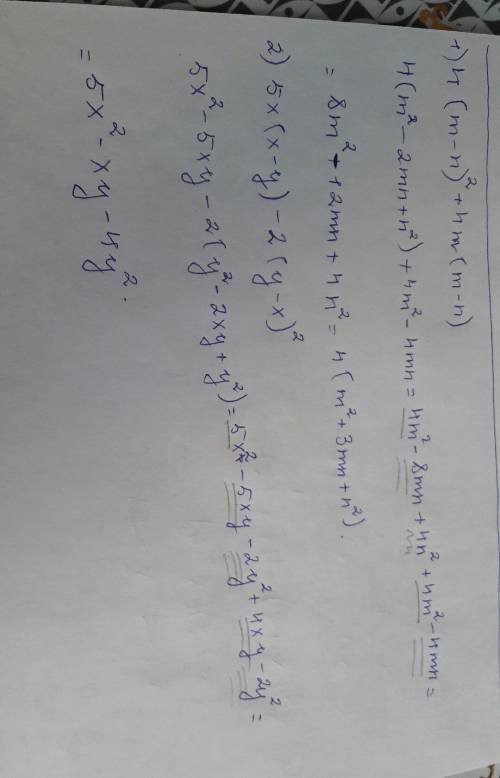 1) 4 (m-n)² + 4m (m-n)
4(m² - 2mn + n²) + 4m² - 4mn = 4m² - 8mn + 4n² + 4m² - 4mn =
= 8m² - 12mn + 4n² = 4 (m² + 3mn + n²).
2) 5x (x-y) - 2 (y-x)²
5x² - 5xy - 2(y² - 2xy + y²) = 5x² - 5xy - 2y² + 4xy - 2y² =
= 5x² - xy - 4y².